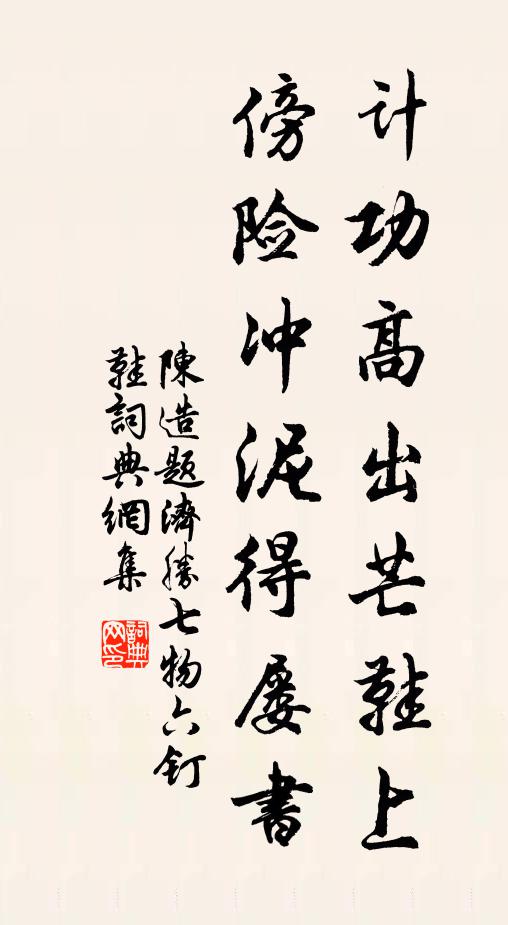 计功高出芒鞋上
傍险冲泥得屡书
陳造题濟勝七物六钉
鞋詞典網集
詞典
网印